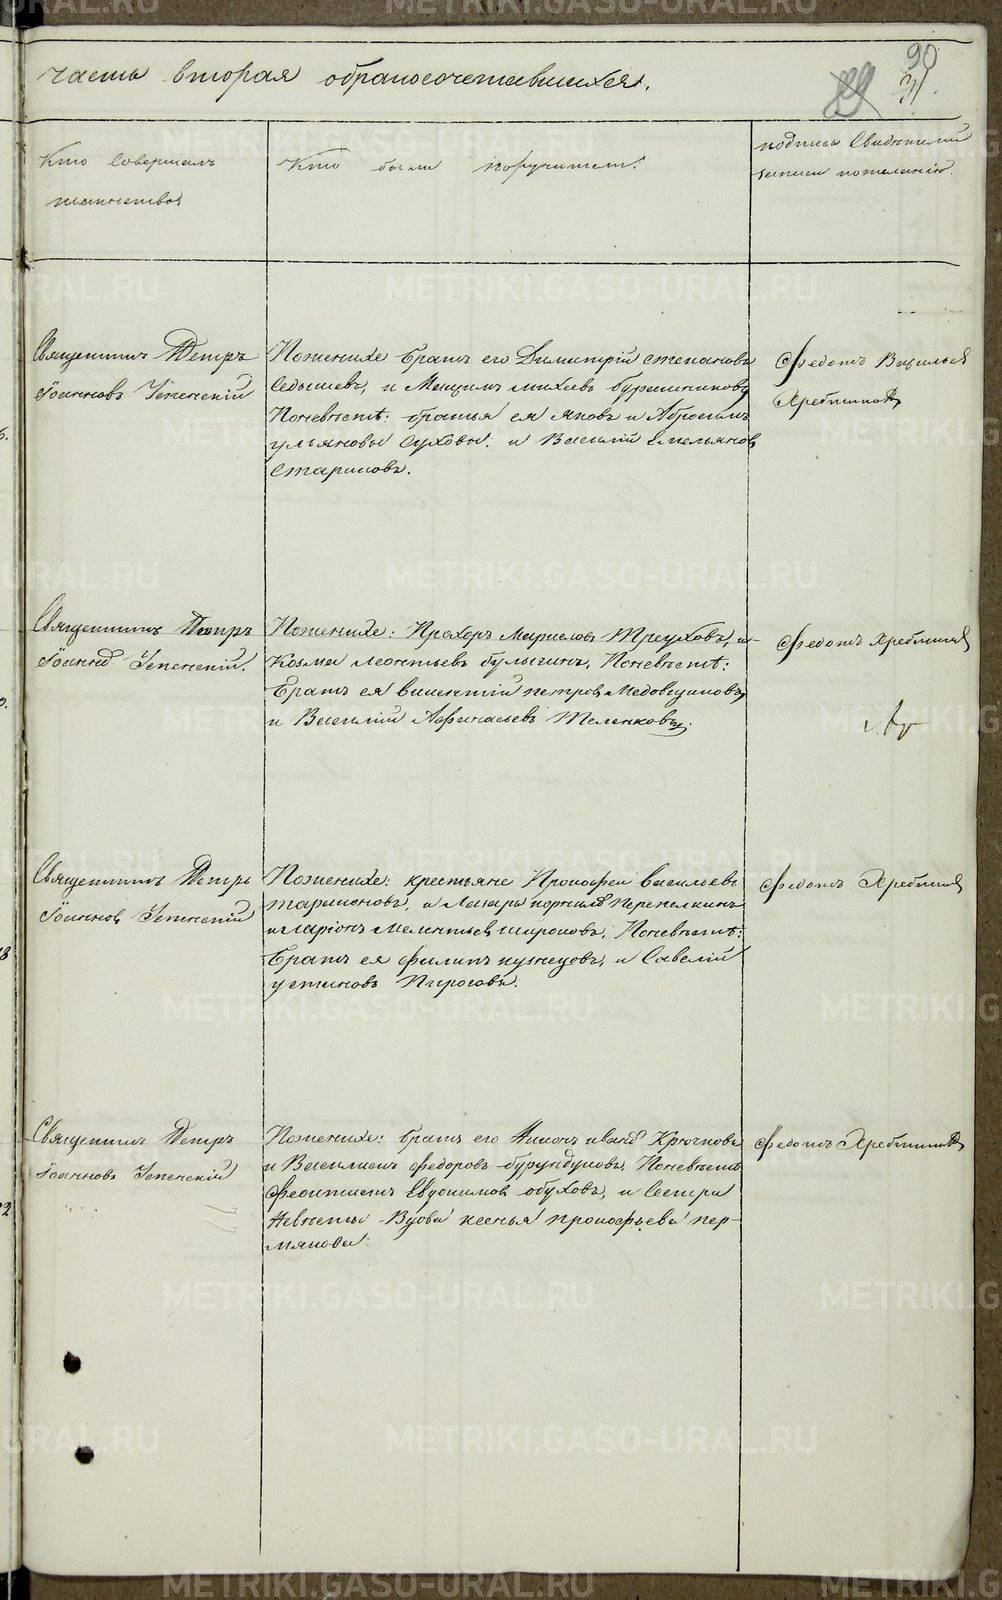 90
часть вторая обракосочетавшихся.
89 31.
Кто совершалъ
таинство
Кто были поручители:
подписи свидѣтелей
записи пожеланію.
Священникъ Петръ
Iоанновъ Успенскій
Пожениxе братъ его Димитрій степановъ
Седышевъ, и Максимъ михеевъ бурашниковъ
Поневѣстѣ: братья ея яковъ и Абросимъ
ульяновы Суховы. и Василій Емельяновъ
Стариковъ.
Федотъ Васильев
Хребтиковъ
Священникъ Петръ
Iоанновъ Успенскій.
Поженихе: Прохоръ Марковъ Треуховъ, и
Козма леонтьевъ булыгинъ, Поневѣстѣ:
Братъ ея викентій петровъ Медовщиковъ,
и Василій Афанасьевъ Теленковъ.
Федотъ Хребтиковъ
Священникъ Петръ
Iоанновъ Успенскій
Поженихе: крестьяне Прокофей васильевъ
таракановъ, и Лазарь корниловъ Перепелкинъ
иларіонъ Мелентьевъ широковъ, Поневѣстѣ:
Братъ ея филипъ кузнецовъ, и Савелій
устиновъ Пироговъ.
Федотъ Хребтиковъ
Священникъ Петръ
Iоанновъ Успенскій
Поженихе: братъ его иванъ Крючковъ
и Василискъ федоровъ бурундуковъ, Поневѣстѣ
Феоктистъ Евдокимовъ обуховъ, и сестра
Невѣсты Вдова ксенья прокофьева пер-
мякова.
Федотъ Хребтиковъ
METRIKI.GASO-URAL.RU